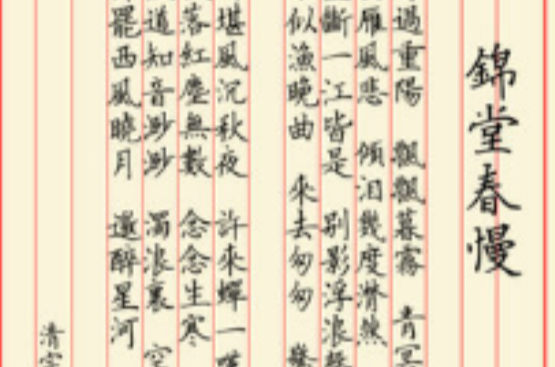 錦堂春慢
過重陽 飄飄暮霧 青冥
雁風悲 傾泪幾度潸然
斷一江皆是 别影浮浪
似漁晚曲 來去匆匆
堪風沉秋夜 許來蟬一
落紅塵無數 念念生寒
道知音渺渺 濁浪裏 空
罷西風曉月 邀醉星河
清